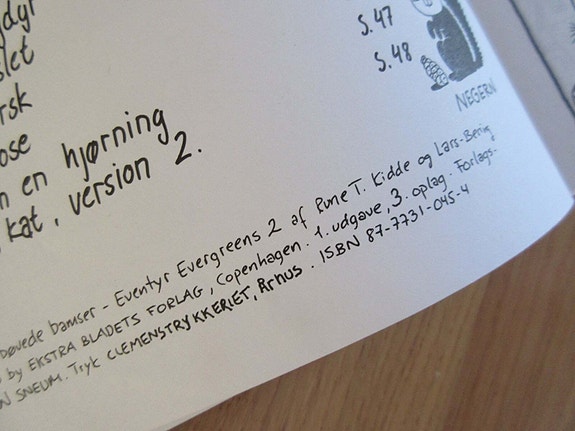 S.47
slet
S.48
rsk
NEGERN
ose
n en hjørning
kat, version 2.
Døvede bamser - Eventyr Evergreens 2 af Rune T. Kidde og Lars-Bering
by EKSTRA BLADETS FORLAG, Copenhagen. 1. udgave, 3. oplag. Forlags-
SNEUM. Tryk CLEMENSTRYKKERIET, Århus. ISBN 87-7731-045-4